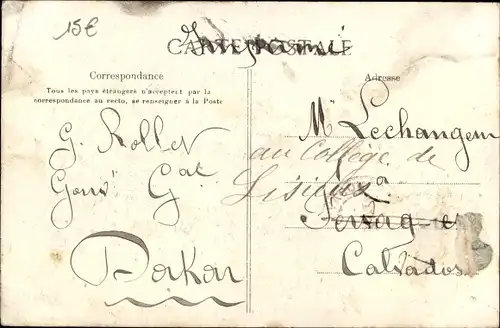 15€
CARTE POSTALE
Correspondance
Tous les pays étrangers n'acceptent par la
correspondance au recto, se renseigner à la Poste
G. Rollet
Gouv^t G^al
Dakar
Adresse
M^r Lechangeur
au Collège de
Lisieux
à
Calvados